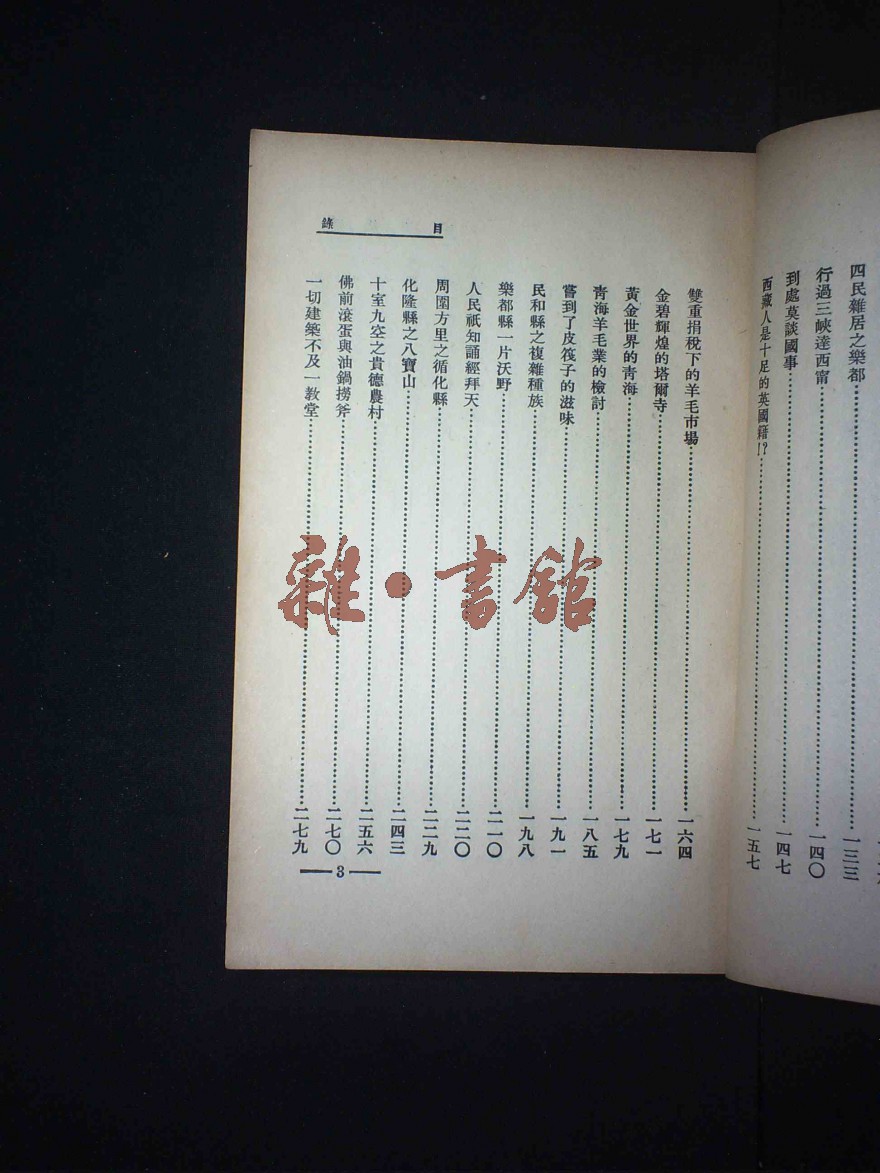 四民雜居之樂都……一三三
行過三峽達西甯……一四〇
到處莫談國事……一四七
西藏人是十足的英國籍!?……一五七
目錄
雙重捐稅下的羊毛市場……一六四
金碧輝煌的塔爾寺……一七一
黃金世界的青海……一七九
青海羊毛業的檢討……一八五
嘗到了皮筏子的滋味……一九一
民和縣之複雜種族……一九八
樂都縣一片沃野……二一〇
人民祇知誦經拜天……二二〇
周圍方里之循化縣……二二九
化隆縣之八寶山……二四三
十室九空之貴德農村……二五六
佛前滾蛋與油鍋撈斧……二七〇
一切建築不及一教堂……二七九
3
雜·書館